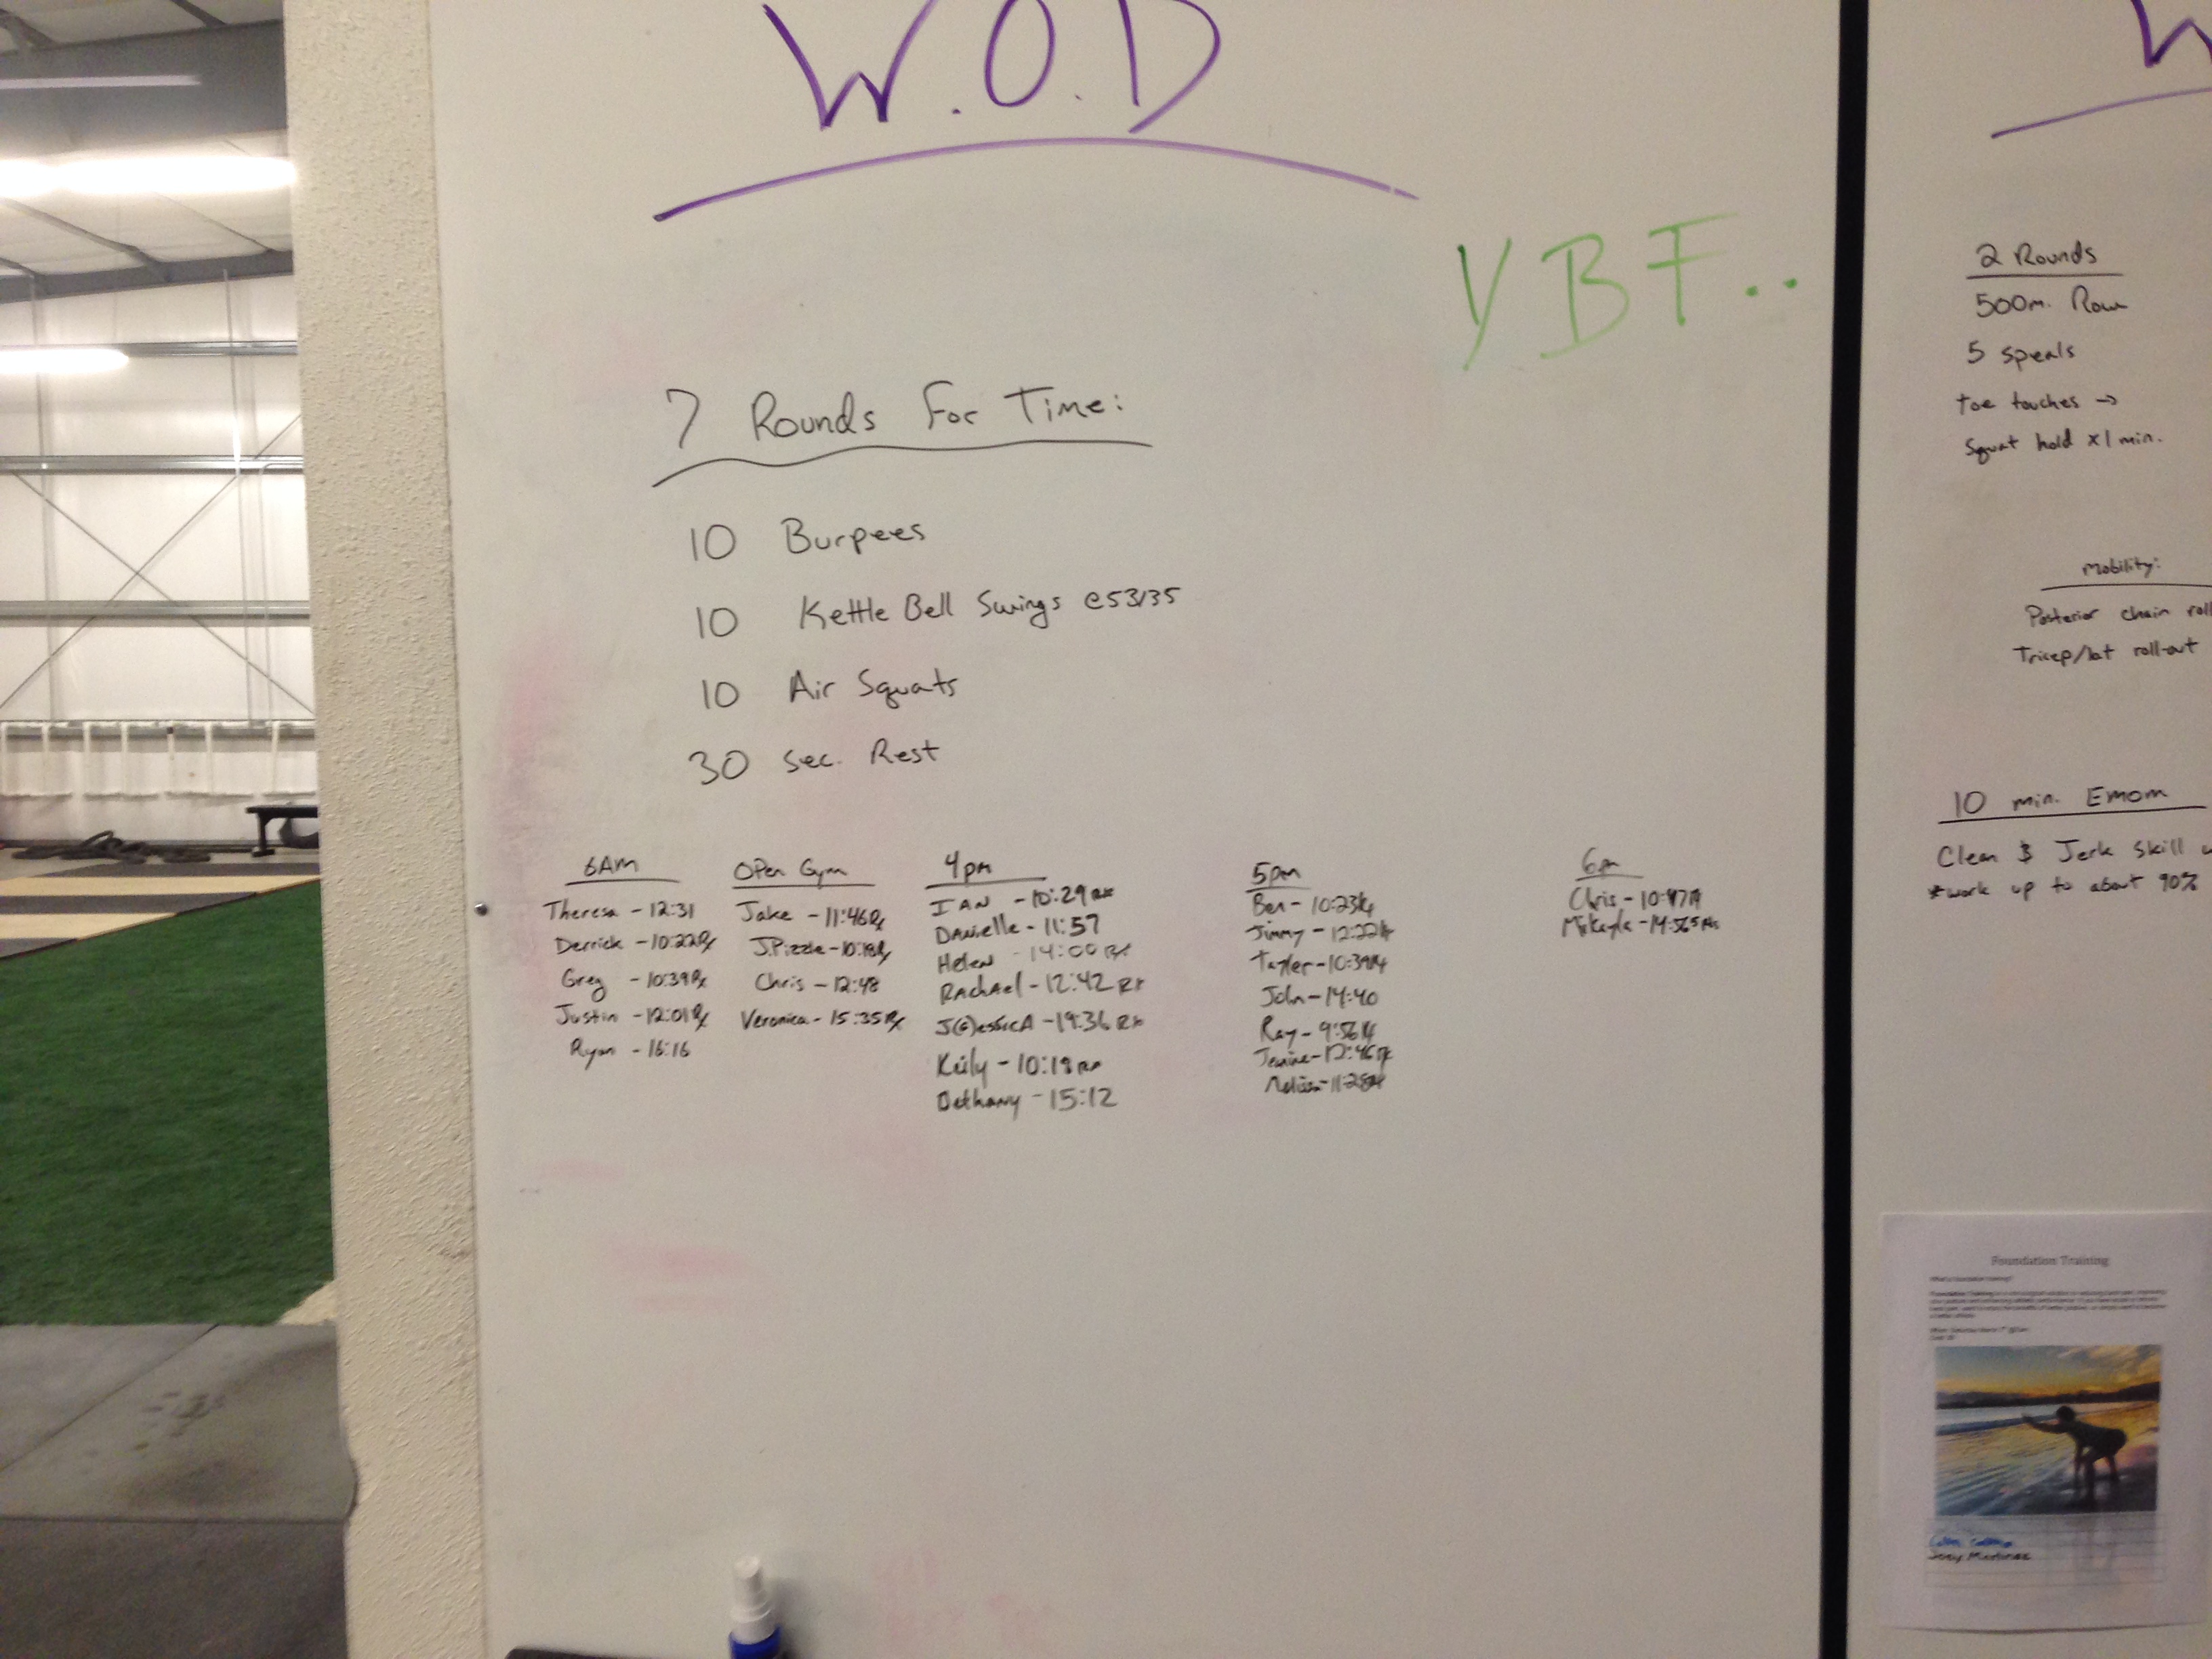 W.O.D
YBF..
7 Rounds For Time:
10 Burpees
10 Kettle Bell Swings @53/35
10 Air Squats
30 sec. Rest
6AM
Theresa - 12:31
Derrick - 10:22 Rx
Greg - 10:39 Rx
Justin - 12:01 Rx
Ryan - 16:16
Open Gym
Jake - 11:46 Rx
J.Pizzle - 10:18 Rx
Chris - 12:48
Veronica - 15:35 Rx
4pm
IAN - 10:29 Rx
Danielle - 11:57
Helen - 14:00 Rx
Rachael - 12:42 Rx
J(G)essica - 19:36 Rx
Keily - 10:18 Rx
Bethany - 15:12
5pm
Ben - 10:23 Rx
Jimmy - 12:22 Rx
Tayler - 10:39 Rx
John - 14:40
Ray - 9:56 Rx
Jenine - 12:46 Rx
Melissa - 11:28 Rx
6pm
Chris - 10:47 Rx
Mikayla -
2 Rounds
500m. Row
5 speals
toe touches →
Squat hold x1 min.
Mobility:
Posterior chain roll
Tricep/lat roll-out
10 min. Emom
Clean & Jerk Skill
*work up to about 90%
Foundation Training
Joey Martinez